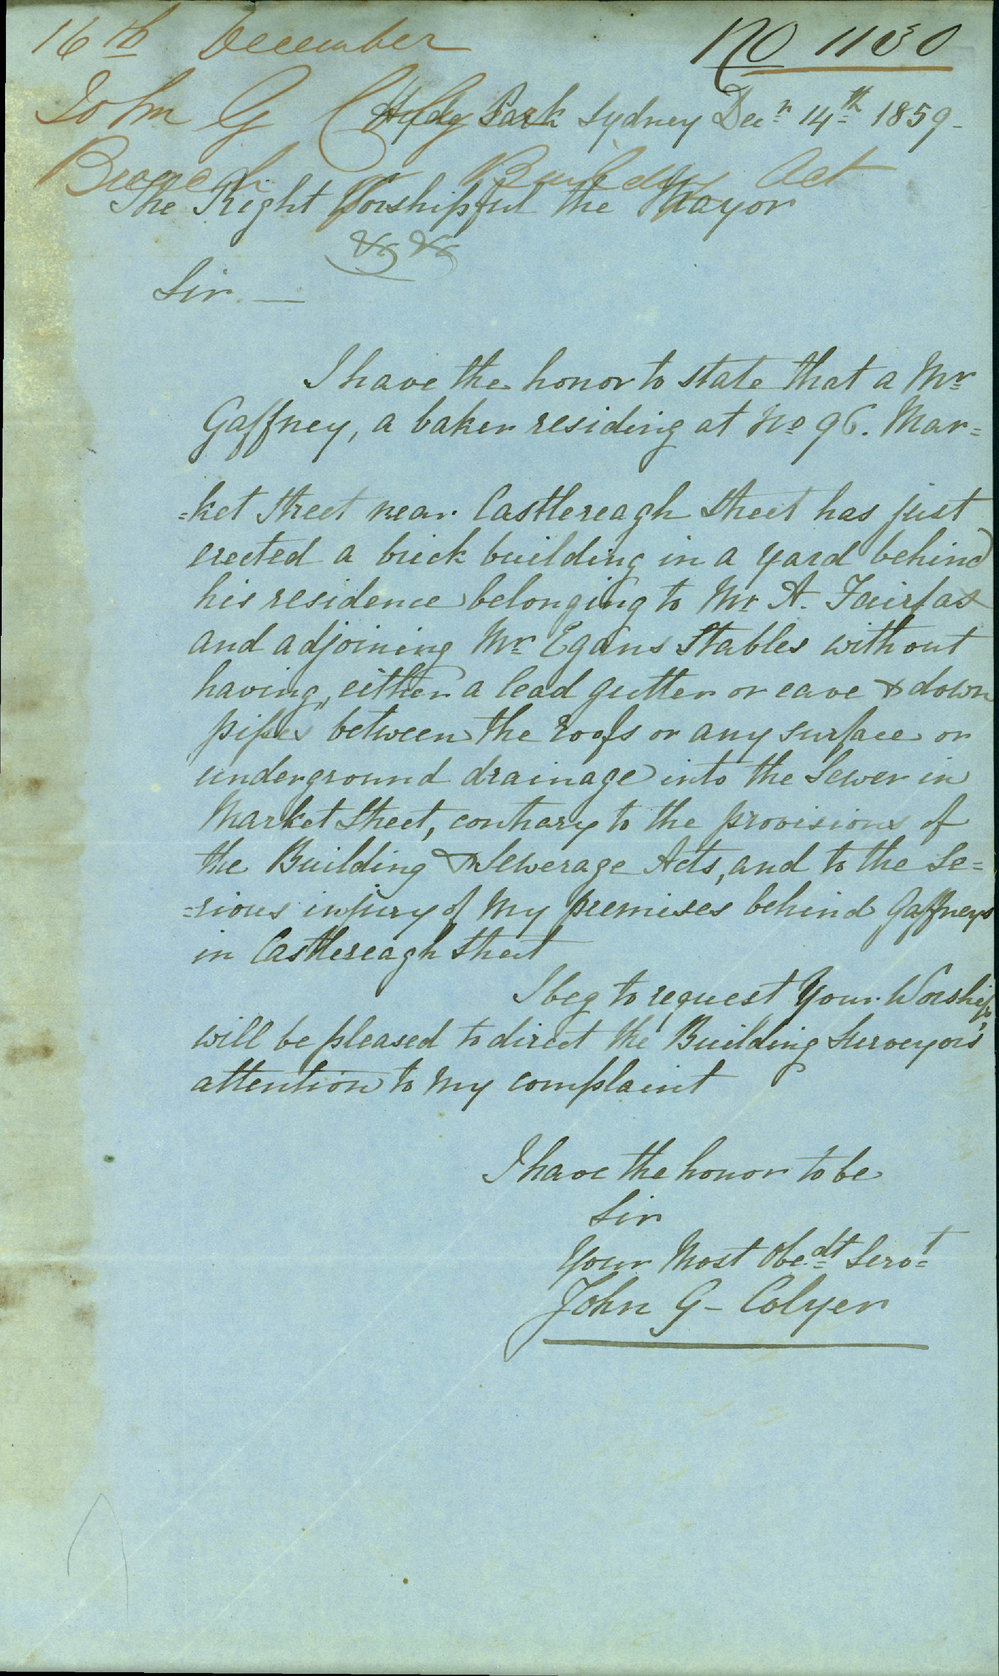 16th December
No 1130
John G
Hyde Park Sydney Decr 14th 1859-
Breach of Building Act
The Right Worshipful the Mayor
&c &c
Sir —
I have the honor to state that a Mr
Gaffney, a baker residing at No 96. Mar=
=ket Street near Castlereagh Street has just
erected a brick building in a yard behind
his residence belonging to Mr A. Fairfax
and adjoining Mr Egans Stables without
having, either a lead gutter or eave & down
pipes between the roofs or any surface or
underground drainage into the Sewer in
Market Street, contrary to the provisions of
the Building & Sewerage Acts, and to the Se=
=rious injury of my premises behind Gaffneys
in Castlereagh Street
I beg to request Your Worship
will be pleased to direct the Building Surveyors'
attention to my complaint
I have the honor to be
Sir
Your Most Obedt Servt
John G- Colyer